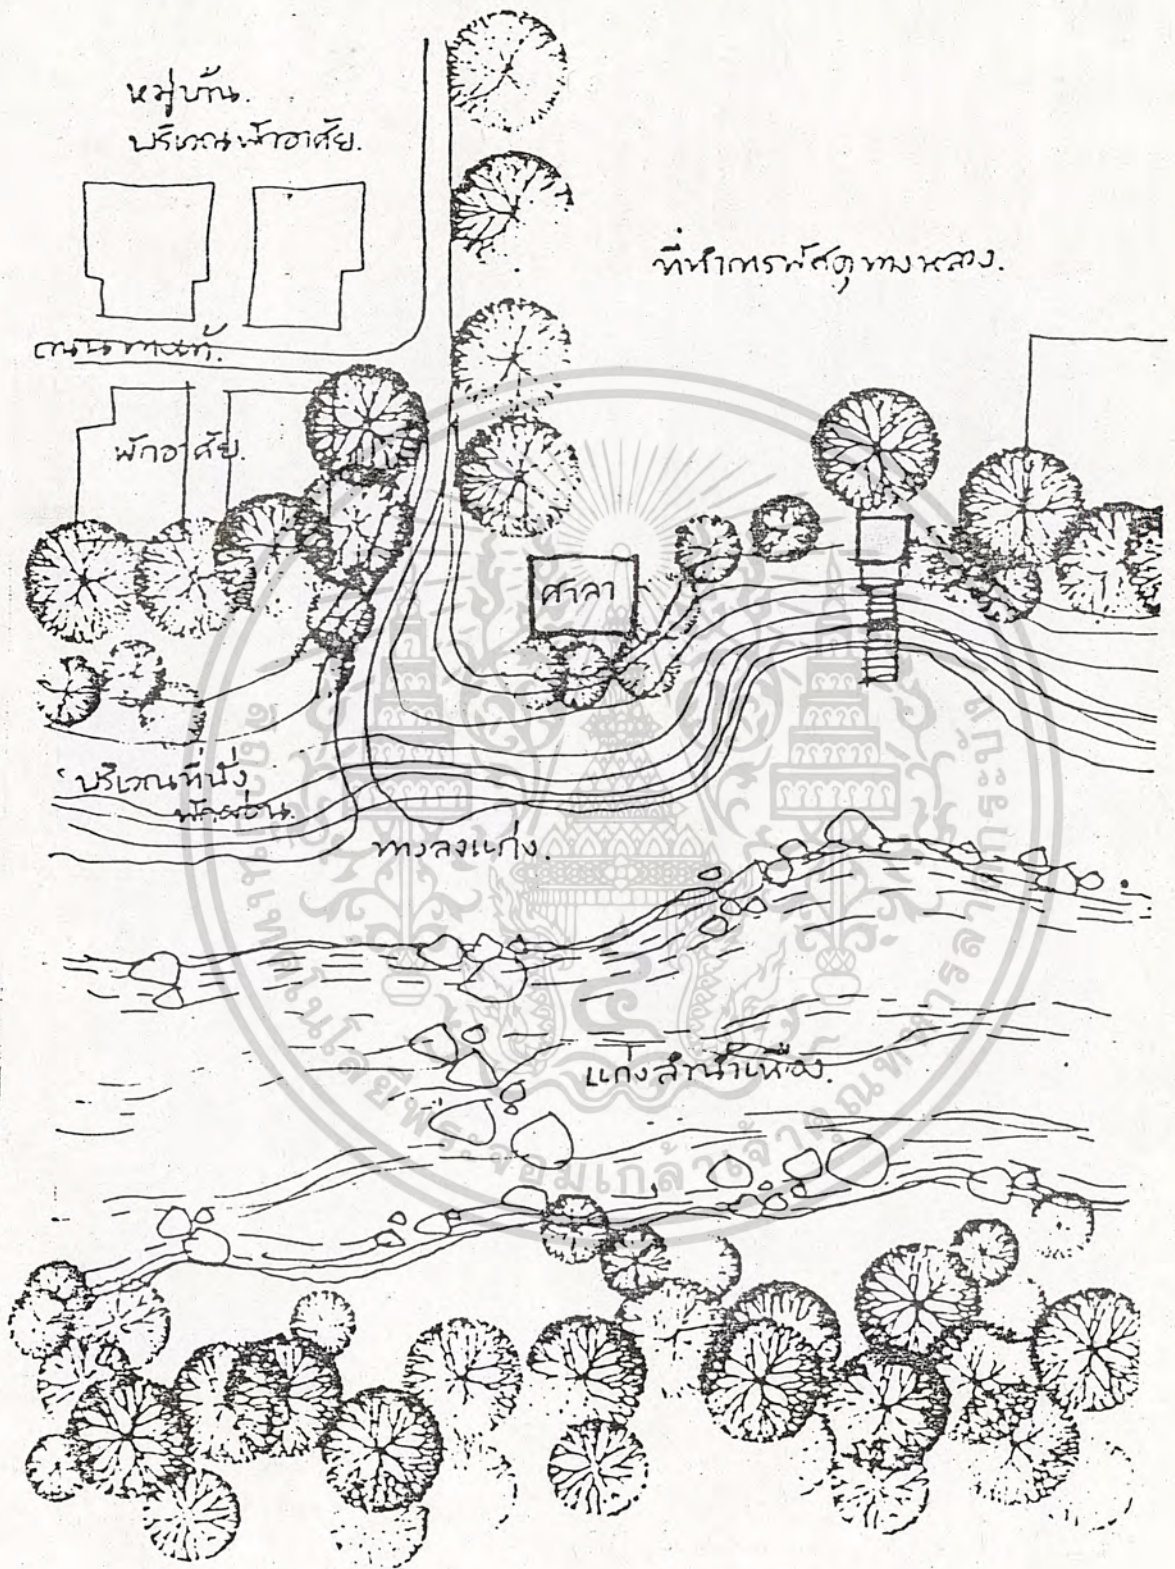 หมู่บ้าน.
บริเวณพักอาศัย.
ที่ทำการพัสดุทางหลวง.
ถนนทางเท้า.
พักอาศัย.
ศาลา
บริเวณที่นั่ง
พักผ่อน.
ทางลงแก่ง.
แก่งลำน้ำเหือง.
เทคโนโลยีพระจอมเกล้าเจ้าคุณทหารลาดกระบัง